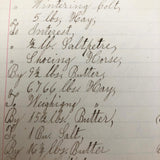 " Wintering Colt,
" 5 lbs. Hay,
To Interest,
" ½ lb. Saltpetre,
" Shoeing Horse,
By 9½ lbs. Butter,
" 6766 lbs. Hay,
To Weighing "
By 15½ lbs. Butter,
To 1 Bu. Salt,
By 16½ lbs. Butter